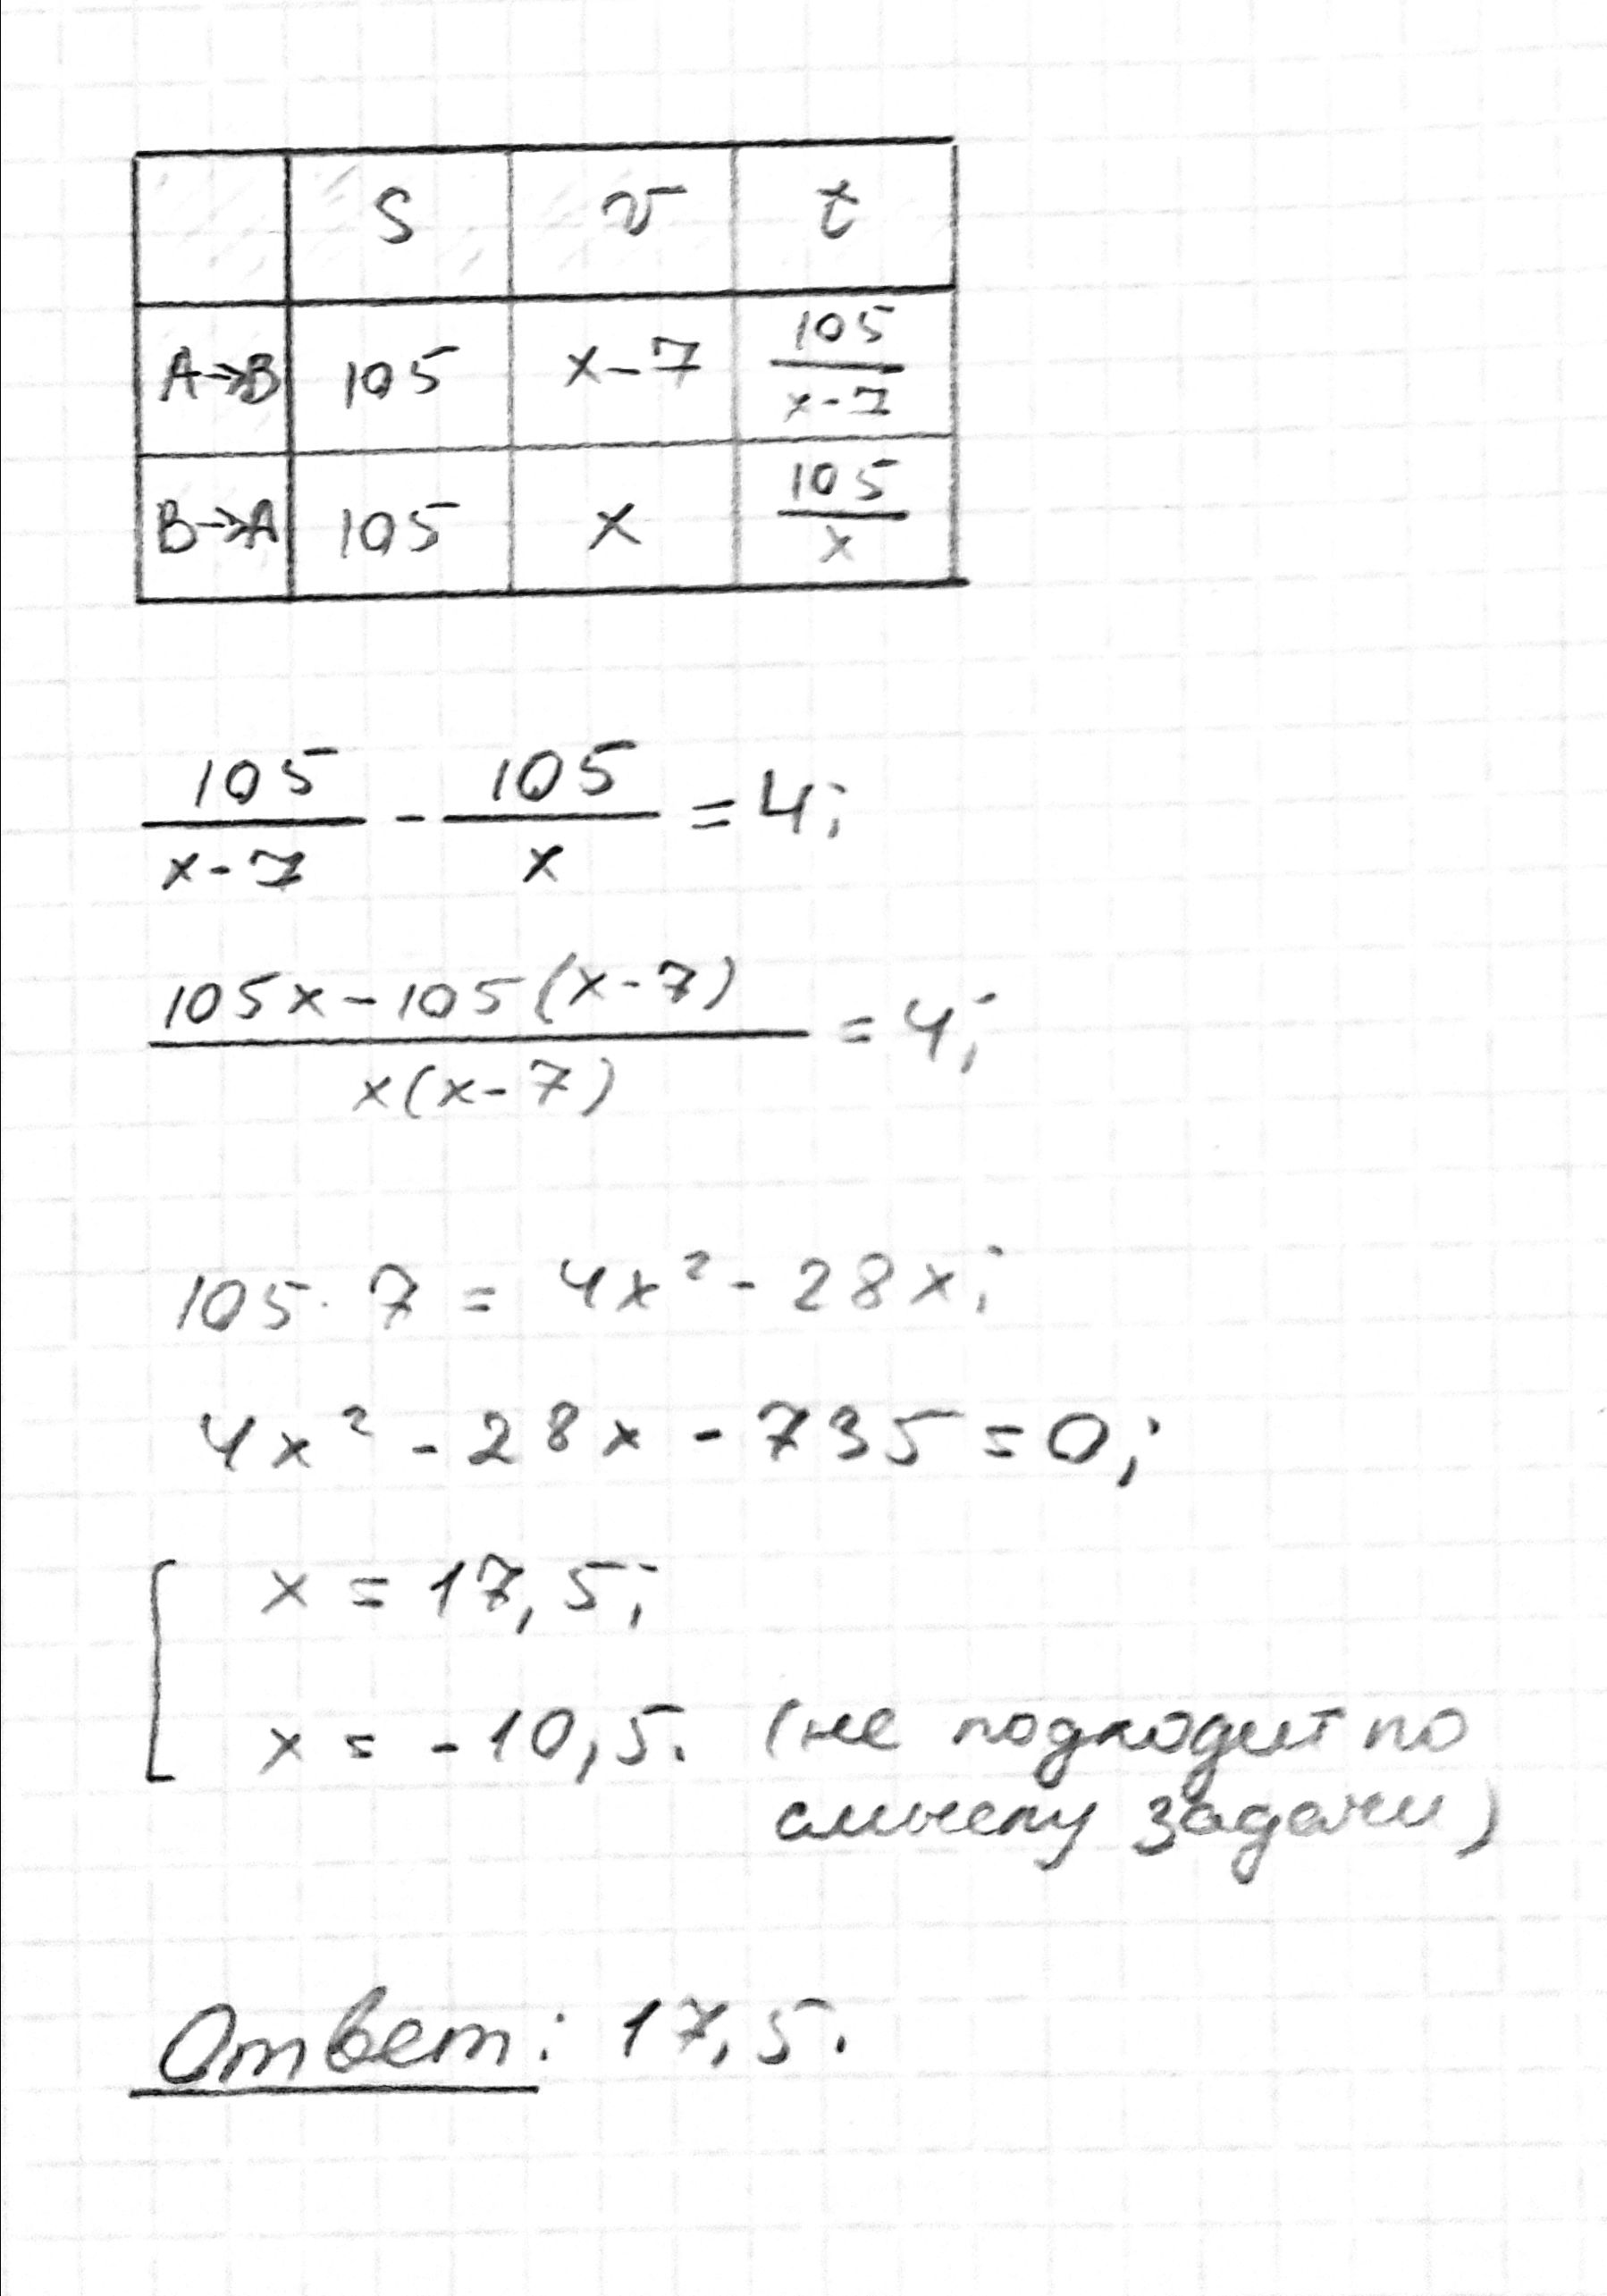 S v t
A→B 105 x-7 105/(x-7)
B→A 105 x 105/x
105/(x-7) - 105/x = 4;
(105x - 105(x-7))/(x(x-7)) = 4;
105·7 = 4x² - 28x;
4x² - 28x - 735 = 0;
x = 17,5;
x = -10,5. (не подходит по
смыслу задачи)
Ответ: 17,5.